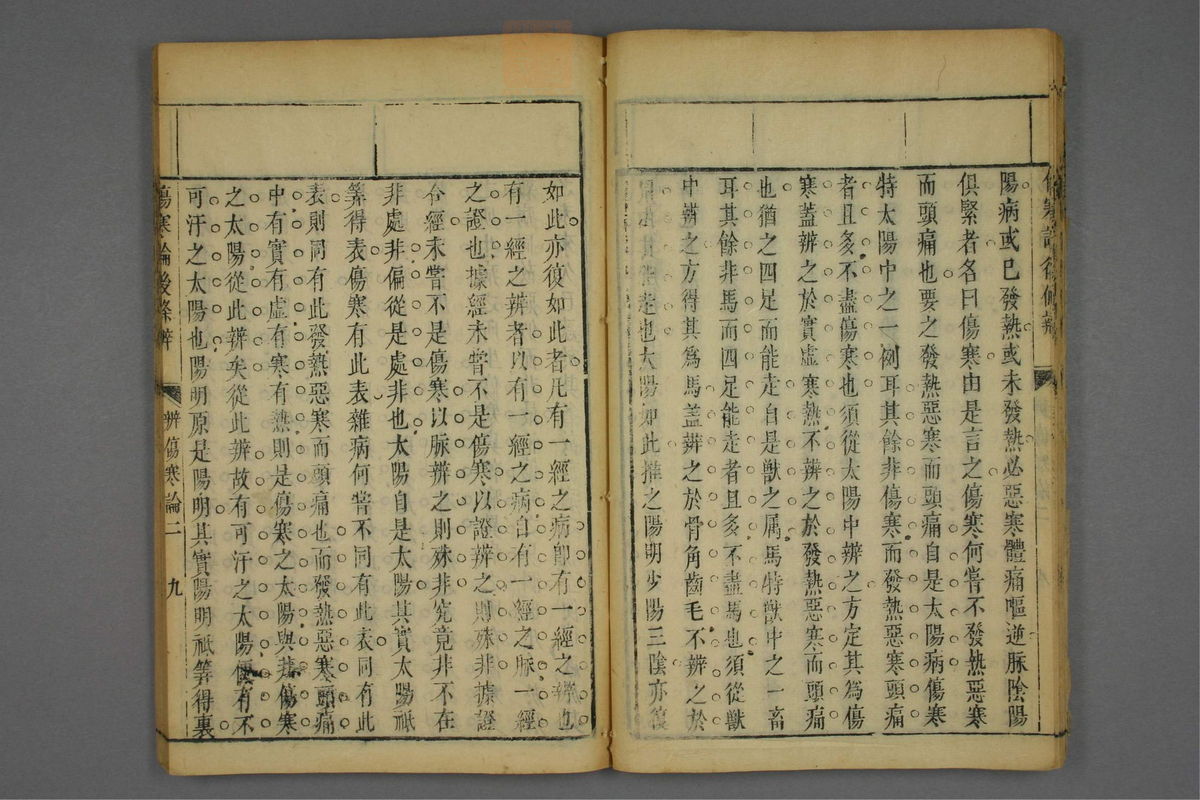 陽病或已發熱或未發熱必惡寒體痛嘔逆脈陰陽
俱緊者名曰傷寒由是言之傷寒何嘗不發熱惡寒
而頭痛也要之發熱惡寒而頭痛自是太陽病傷寒
特太陽中之一例耳其餘非傷寒而發熱惡寒頭痛
者且多不盡傷寒也須從太陽中辨之方定其為傷
寒蓋辨之於實虛寒熱不辨之於發熱惡寒而頭痛
也猶之四足而能走自是獸之属馬特獸中之一畜
耳其餘非馬而四足能走者且多不盡馬也須從獸
中辨之方得其為馬蓋辨之於骨角齒毛不辨之於
走也太陽如此推之陽明少陽三陰亦復
如此亦復如此者凡有一經之病卽有一經之辨也
有一經之辨者以有一經之病自有一經之脈一經
之證也據經未嘗不是傷寒以證辨之則殊非據證
今經未嘗不是傷寒以脈辨之則殊非究竟非不在
非處非偏從是處非也太陽自是太陽其實太陽祇
筭得表傷寒有此表雜病何嘗不同有此表同有此
表則同有此發熱惡寒而頭痛也而發熱惡寒頭痛
中有實有虛有寒有熱則是傷寒之太陽與非傷寒
之太陽從此辨矣從此辨故有可汗之太陽便有不
可汗之太陽也陽明原是陽明其實陽明祇筭得裏
傷寒論後條辨 辨傷寒論二 九